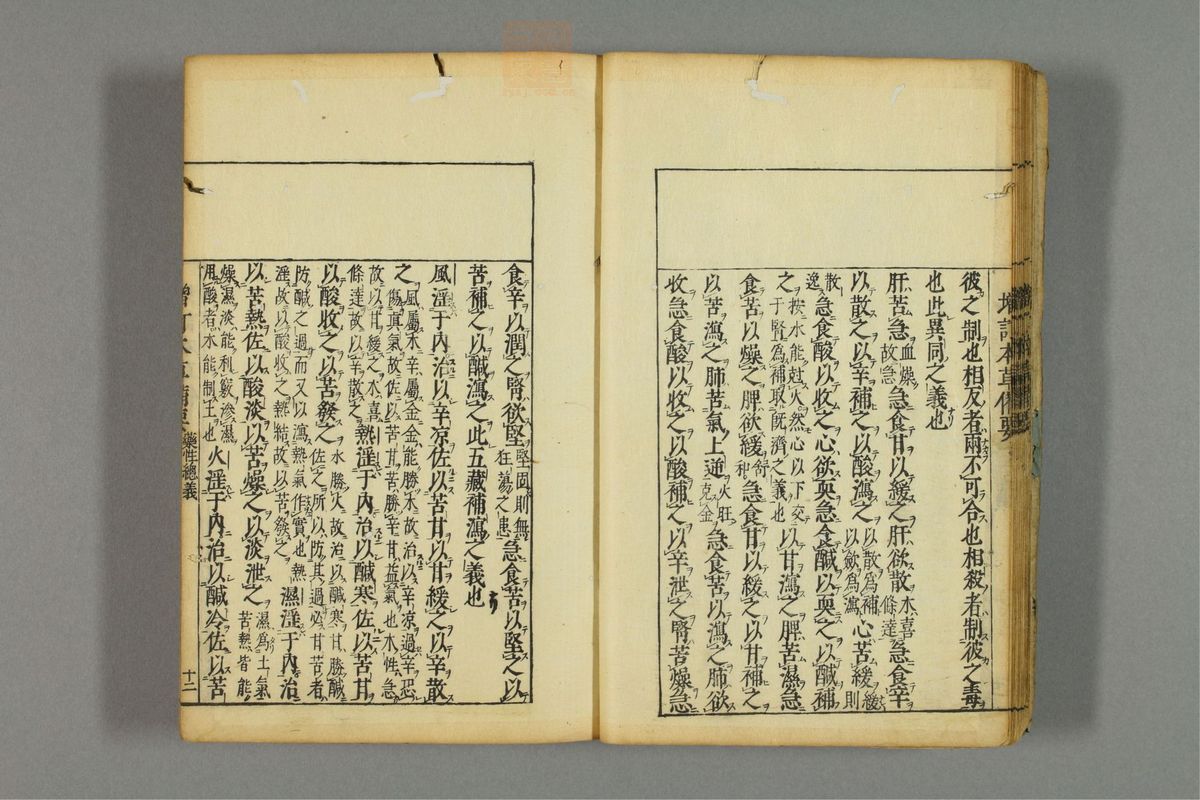 增訂本草備要
彼之制也相反者兩不可合也相殺者制彼之毒
也此異同之義也
肝苦急血燥故急急食甘以緩之肝欲散木喜條達急食辛
以散之以辛補之以酸瀉之以散爲補以斂爲瀉心苦緩緩則
散逸急食酸以收之心欲耎急食鹹以耎之以鹹補
之按水能尅火然心以下交于腎爲補取既濟之義也以甘瀉之脾苦濕急
食苦以燥之脾欲緩舒和急食甘以緩之以甘補之
以苦瀉之肺苦氣上逆火旺克金急食苦以瀉之肺欲
收急食酸以收之以酸補之以辛泄之腎苦燥急
食辛以潤之腎欲堅堅固則無狂蕩之患急食苦以堅之以
苦補之以鹹瀉之此五藏補瀉之義也
風淫于內治以辛凉佐以苦甘以甘緩之以辛散
之風屬木辛屬金金能勝木故治以辛凉過辛恐傷真氣故佐以苦甘苦勝辛甘益氣也木性急
故以甘緩之木喜條達故以辛散之熱淫于內治以鹹寒佐以苦甘
以酸收之以苦發之水勝火故治以鹹寒甘勝鹹佐之所以防其過必甘苦者
防鹹之過而又以瀉熱氣作實也熱淫故以酸收之熱結故以苦發之濕淫于內治
以苦熱佐以酸淡以苦燥之以淡泄之濕爲土氣苦熱皆能
燥濕淡能利竅滲濕用酸者木能制土也火淫于內治以鹹冷佐以苦
增訂本草備要 藥性總義 十二